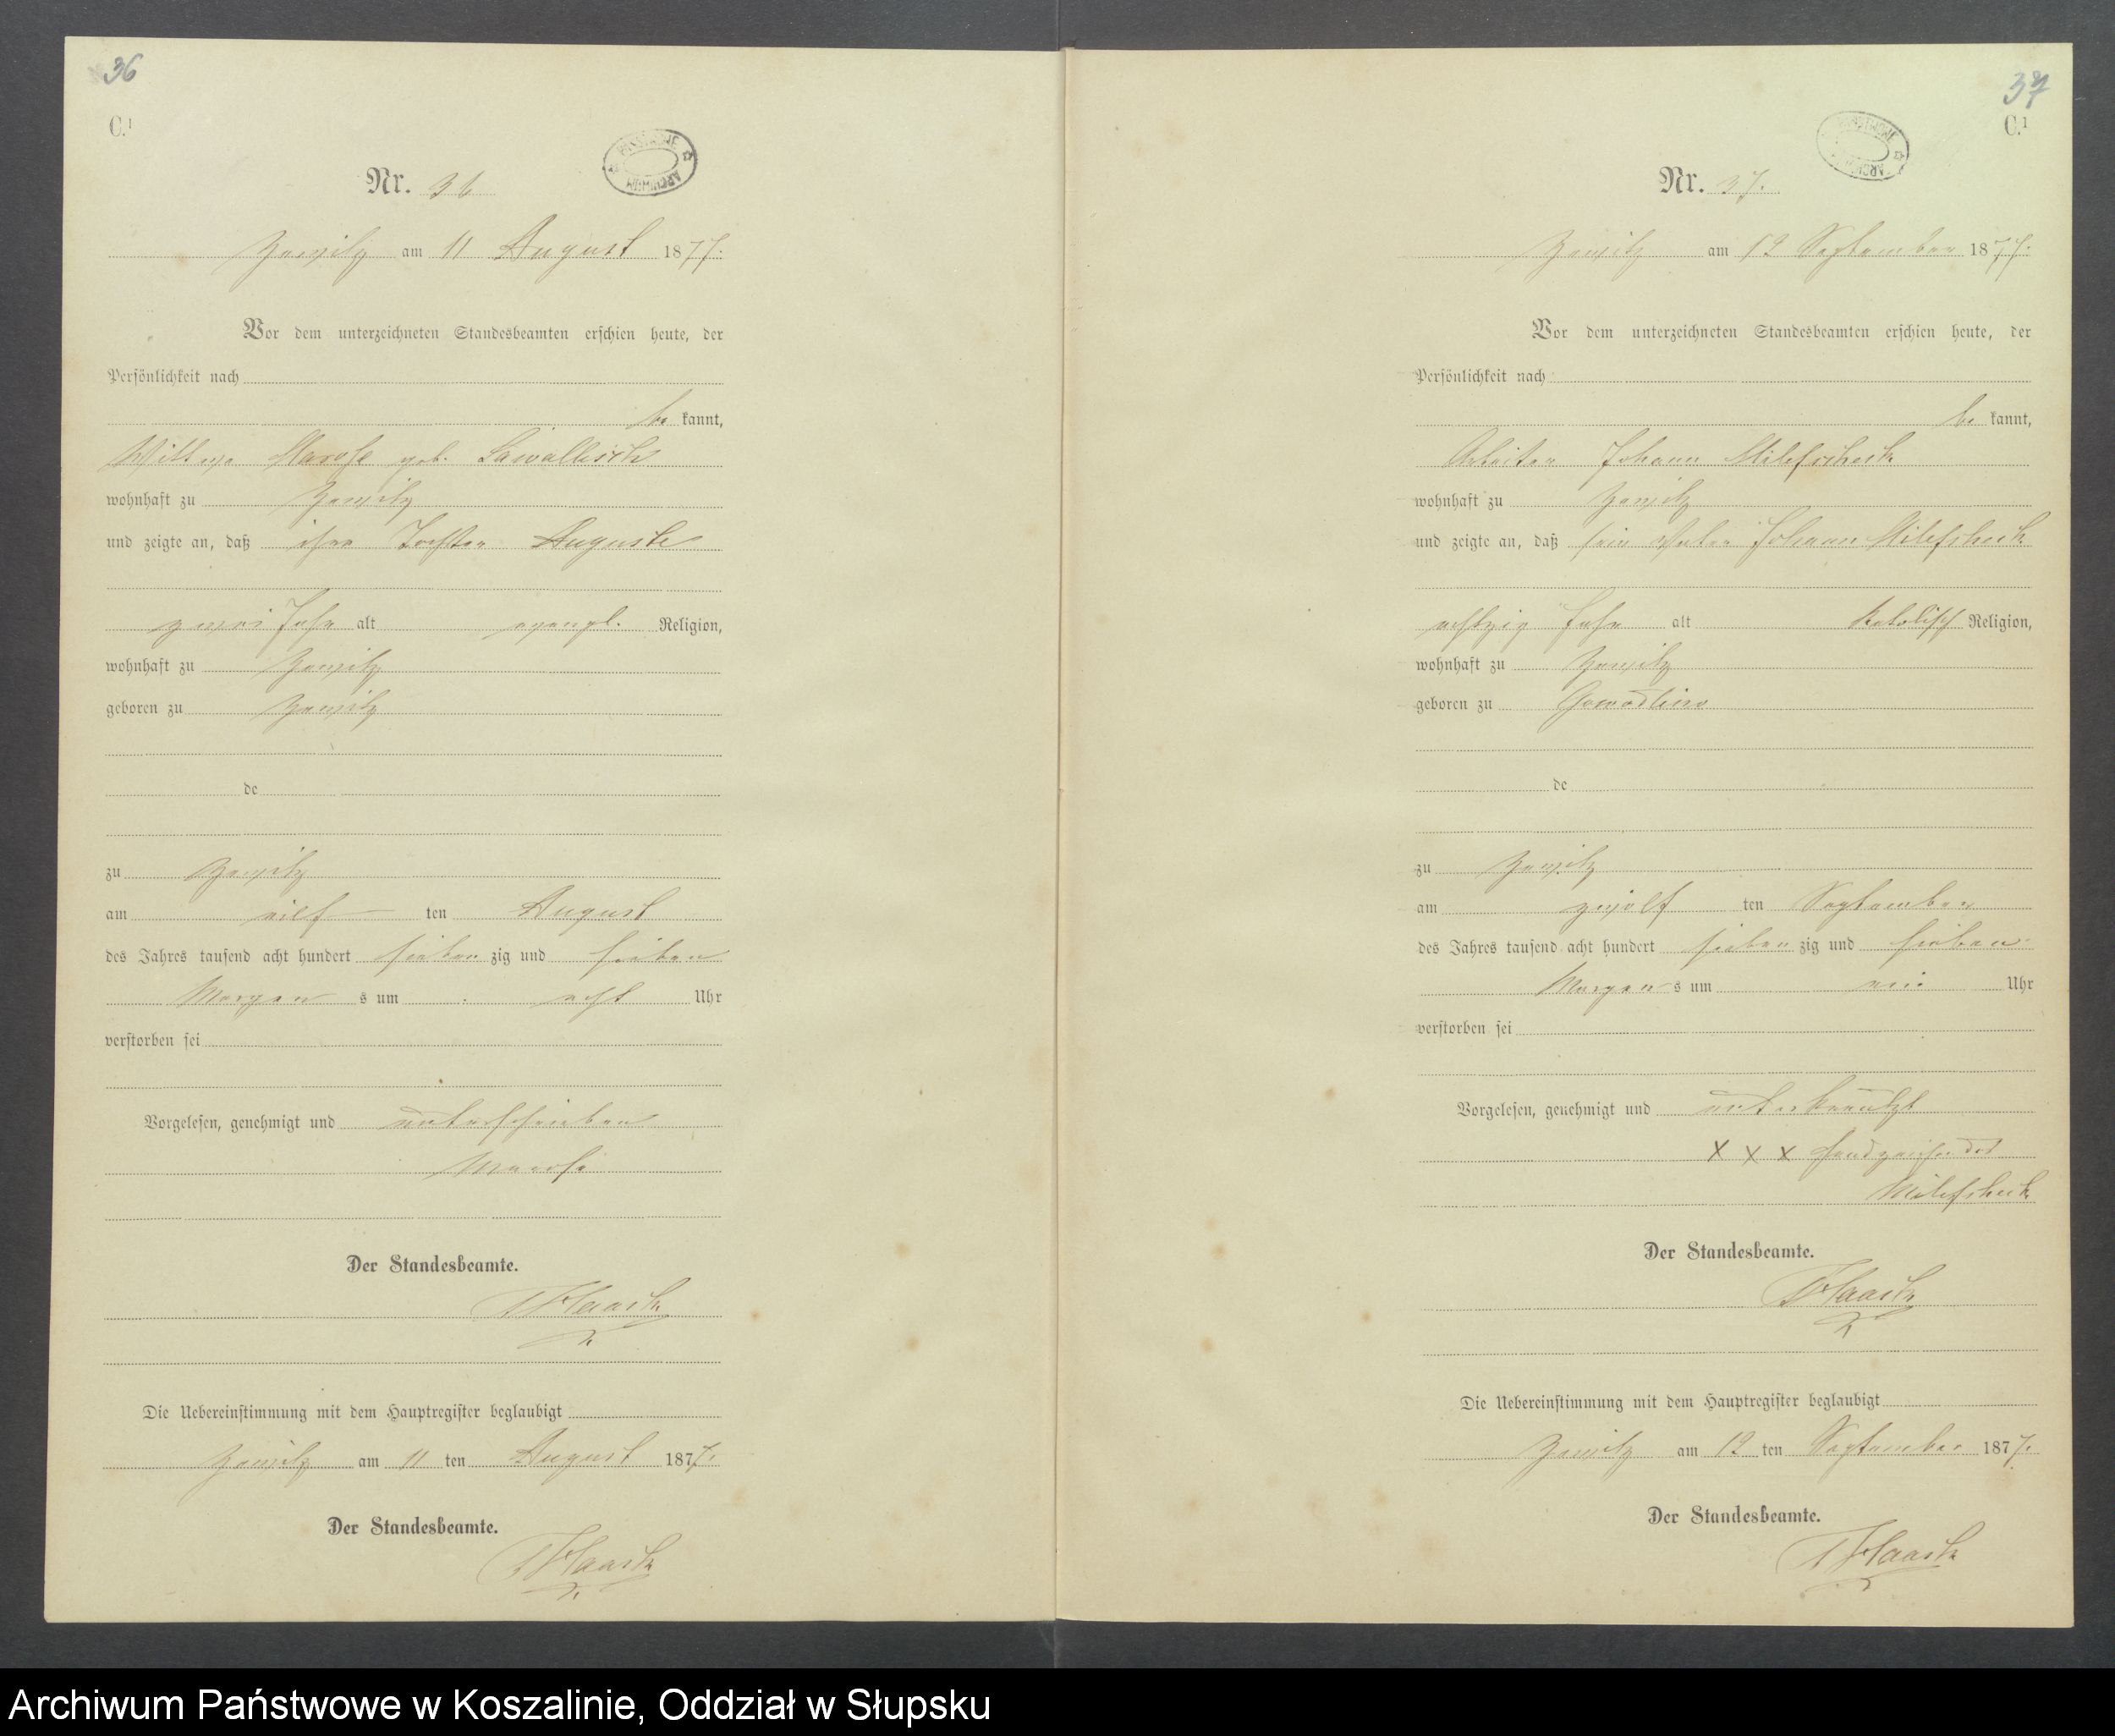 36
C.¹
PAŃSTWOWE ARCHIWUM
Nr. 36
Zewitz am 11 August 1877.
Vor dem unterzeichneten Standesbeamten erschien heute, der
Persönlichkeit nach
be kannt,
Wittwe geb.
wohnhaft zu Zewitz
und zeigte an, daß ihre Tochter Auguste
zwei Jahr alt evangl. Religion,
wohnhaft zu Zewitz
geboren zu Zewitz
de
zu Zewitz
am eilf ten August
des Jahres tausend acht hundert sieben zig und sieben
Morgen s um acht Uhr
verstorben sei
Vorgelesen, genehmigt und unterschrieben
Der Standesbeamte.
Die Uebereinstimmung mit dem Hauptregister beglaubigt
Zewitz am 11 ten August 1877.
Der Standesbeamte.
37
C.¹
PAŃSTWOWE ARCHIWUM
Nr. 37.
Zewitz am 12 September 1877.
Vor dem unterzeichneten Standesbeamten erschien heute, der
Persönlichkeit nach
be kannt,
Arbeiter Johann
wohnhaft zu Zewitz
und zeigte an, daß sein Vater Johann
achtzig Jahr alt katolisch Religion,
wohnhaft zu Zewitz
geboren zu Gowidlino
de
zu Zewitz
am zwölf ten September
des Jahres tausend acht hundert sieben zig und sieben
Morgen s um ein Uhr
verstorben sei
Vorgelesen, genehmigt und unterkreuzt
X X X Handzeichen des
Der Standesbeamte.
Die Uebereinstimmung mit dem Hauptregister beglaubigt
Zewitz am 12 ten September 1877.
Der Standesbeamte.
Archiwum Państwowe w Koszalinie, Oddział w Słupsku